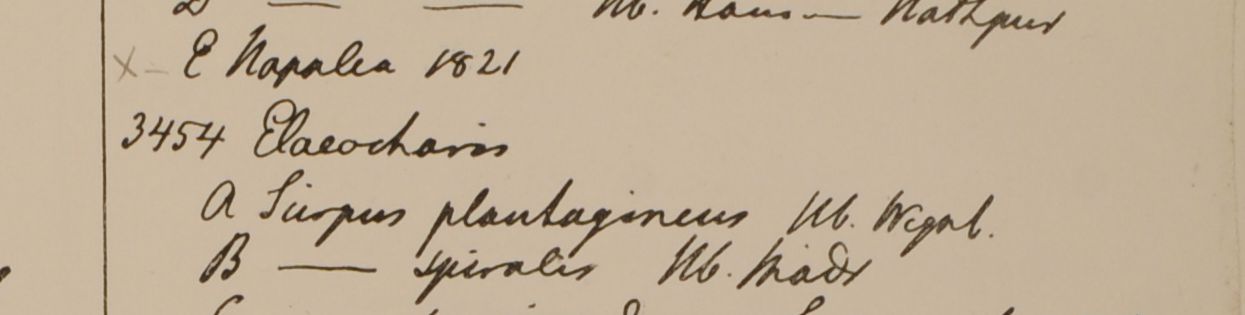 B — — Hb. Ham — Nathpur
x – E Napalea 1821
3454 Elaeocharis
A Scirpus plantagineus Hb. Wight.
B — spiralis Hb. Madr